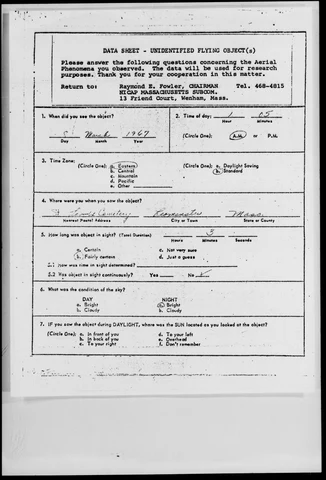 DATA SHEET - UNIDENTIFIED FLYING OBJECT(s)
Please answer the following questions concerning the Aerial
Phenomena you observed. The data will be used for research
purposes. Thank you for your cooperation in this matter.
Return to: Raymond E. Fowler, CHAIRMAN Tel. 468-4815
NICAP MASSACHUSETTS SUBCOM.
13 Friend Court, Wenham, Mass.
1. When did you see the object? 2. Time of day: 1 05
Hour Minutes
8 March 1967 (Circle One): A.M. or P.M.
Day Month Year
3. Time Zone:
(Circle One): a. Eastern (Circle One): a. Daylight Saving
b. Central b. Standard
c. Mountain
d. Pacific
e. Other
4. Where were you when you saw the object?
Cemetery Leominster Mass
Nearest Postal Address City or Town State or County
5. How long was object in sight? (Total Duration) 3
Hours Minutes Seconds
a. Certain c. Not very sure
b. Fairly certain d. Just a guess
5.1 How was time in sight determined?
5.2 Was object in sight continuously? Yes No
6. What was the condition of the sky?
DAY NIGHT
a. Bright a. Bright
b. Cloudy b. Cloudy
7. IF you saw the object during DAYLIGHT, where was the SUN located as you looked at the object?
(Circle One): a. In front of you d. To your left
b. In back of you e. Overhead
c. To your right f. Don't remember